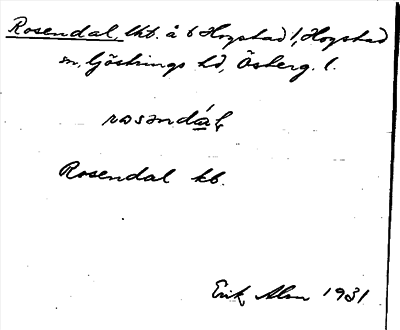 Rosendal, lht. å 6 Hogstad 1, Hogstad
sn, Göstrings hd, Österg. l.
rosəndál
Rosendal kb.
Erik Alm 1931